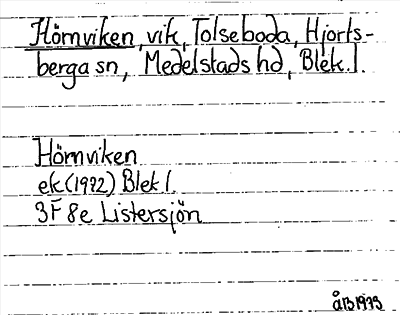 Hörnviken, vik, Tolseboda, Hjorts-
berga sn, Medelstads hd, Blek. l.
Hörnviken
ek (1972) Blek l.
3F 8e Listersjön
ÅB 1973